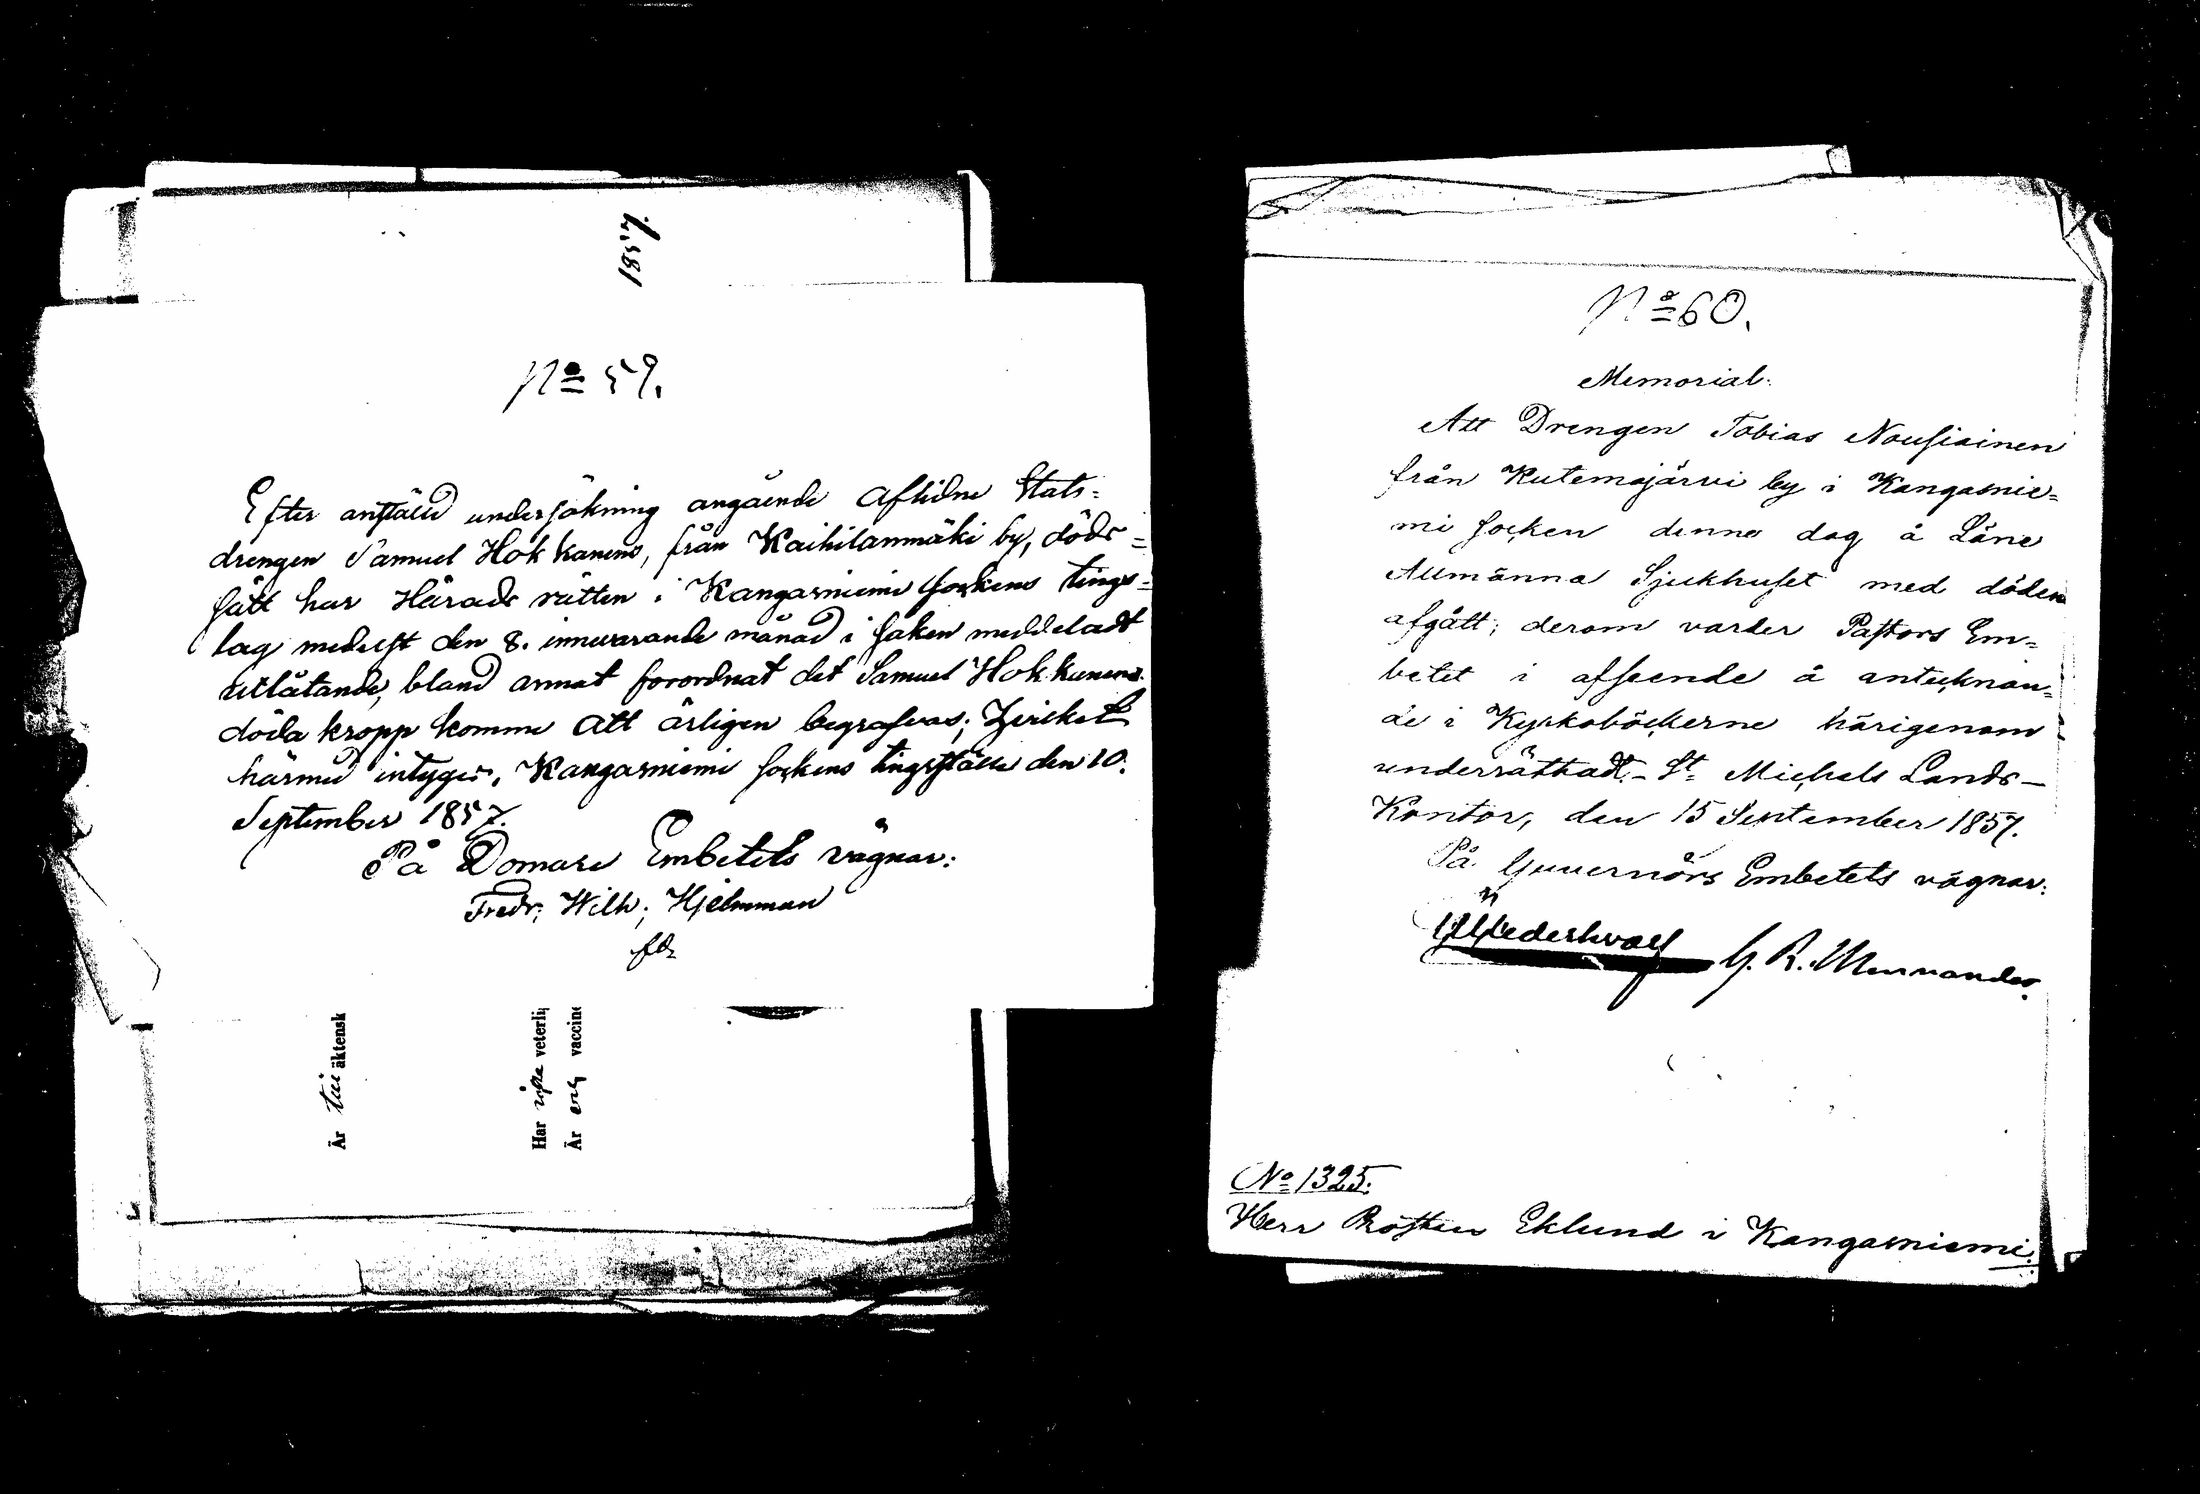 1857.
No 59.
Efter anstäld undersökning angående aflidne Stats-
drengen Samuel Hokkanens, från Kaihilanmäki by, döds-
sätt har Härads rätten i Kangasniemi Sockens tings-
lag medelst den 8. innevarande månad i saken meddeladt
utlåtande, bland annat forordnat det Samuel Hokkanens
döda kropp komme att ärligen begrafvas; Hvilket
härmed intygas, Kangasniemi sockens tingsställe den 10.
September 1857.
På Domare Embetets vägnar:
Fredr. Wilh. Hjelmman
Är äktensk
Har veterli
Är vaccine
No 60.
Memorial.
Att Drengen Tobias Nousiainen
från Kutemajärvi by i Kangasnie=
mi socken denna dag å Läne
Allmänna Sjukhuset med döden
afgått; derom varder Pastors Em=
betet i afseende å antecknan=
de i Kyrkoböckerne härigenom
underrättadt. St Michels Lands-
Kontor, den 15 September 1857.
På Guvernörs Embetets vägnar:
G. R.
No 1325.
Herr Prosten Eklund i Kangasniemi.